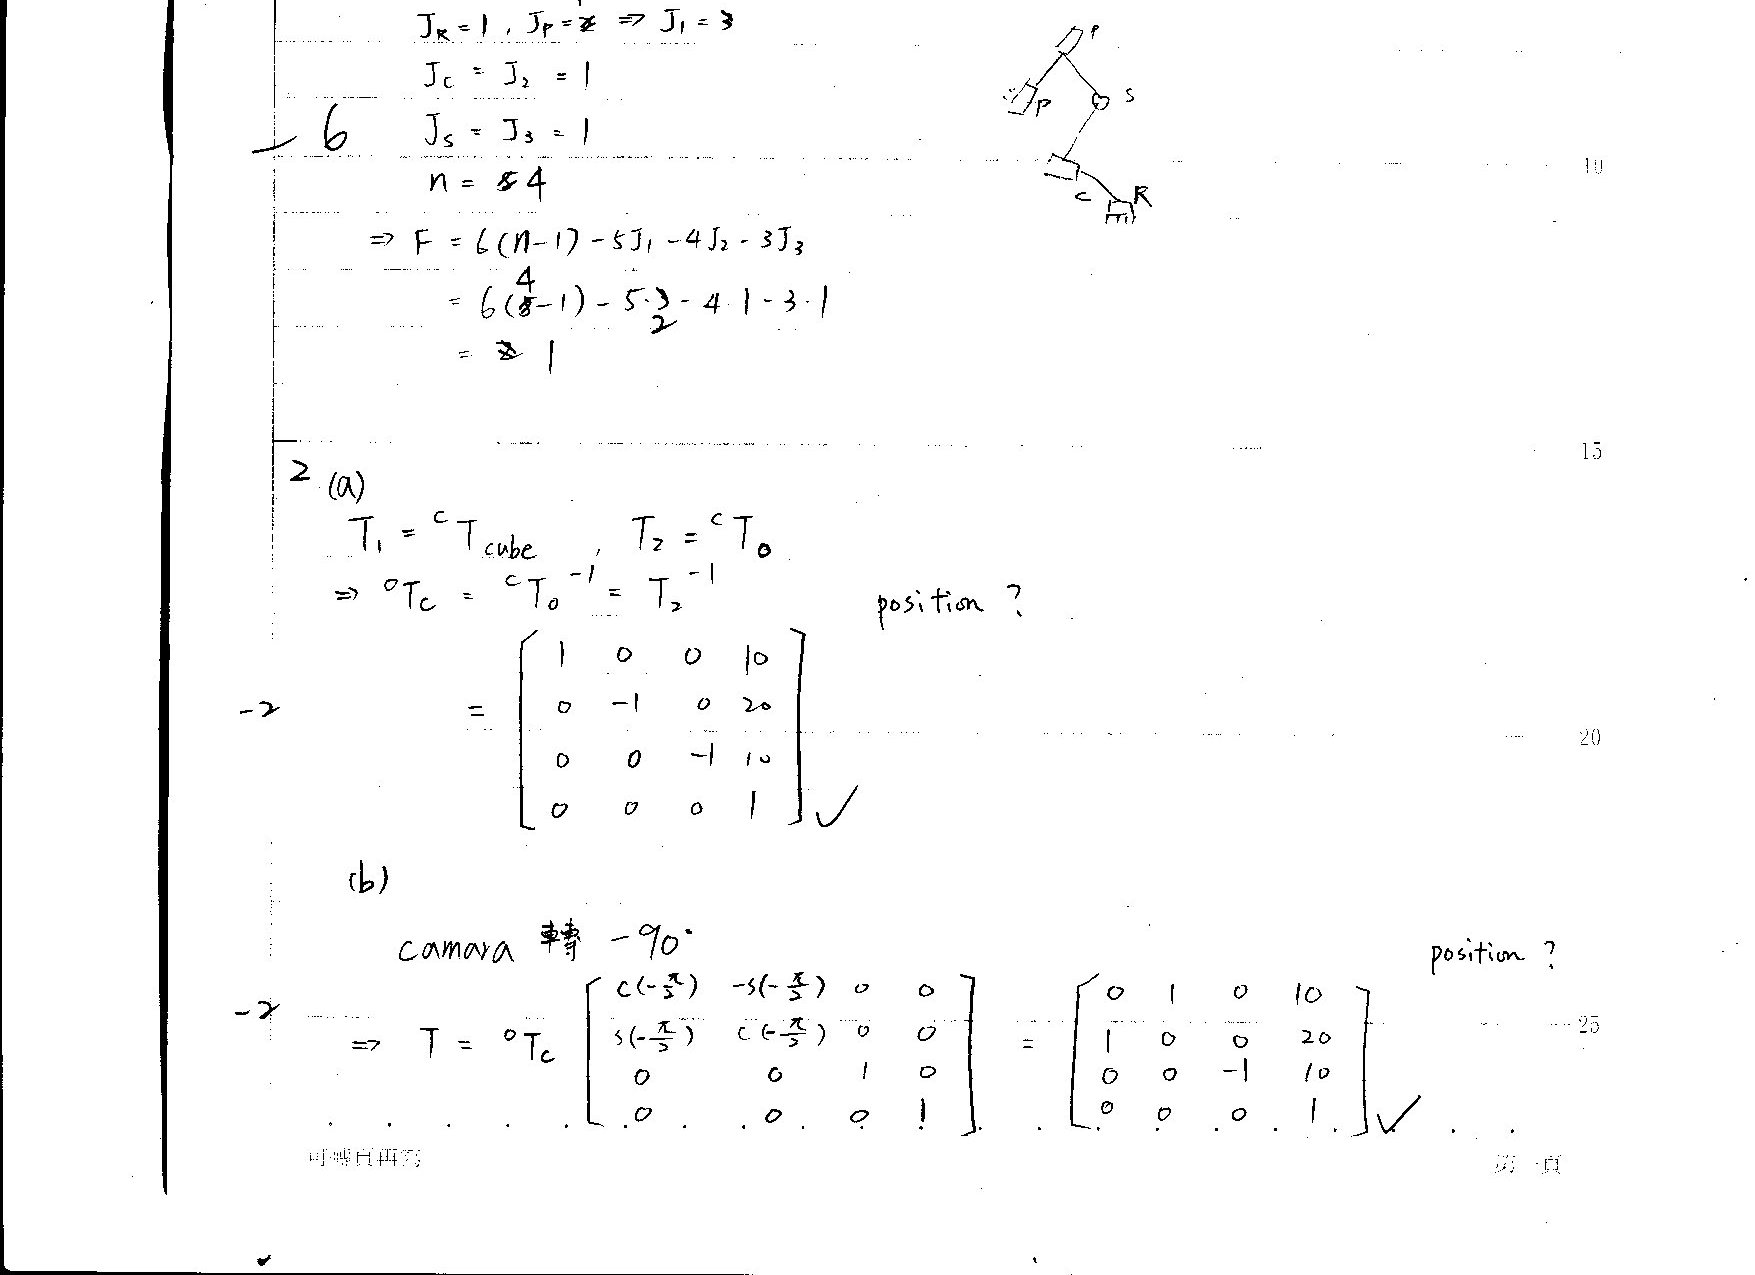 J_R = 1 , J_P = 2 ⇒ J_1 = 3
J_C = J_2 = 1
-6 J_S = J_3 = 1
n = 4
⇒ F = 6(n-1) - 5J_1 - 4J_2 - 3J_3
4
= 6(5-1) - 5·3 - 4·1 - 3·1
2
= 1
P
P
S
C
R
10
15
2 (a)
T_1 = ^cT_cube , T_2 = ^cT_0
⇒ ^0T_c = ^cT_0^-1 = T_2^-1
position ?
1 0 0 10
-2 = 0 -1 0 20
0 0 -1 10
0 0 0 1 ✓
20
(b)
camara 轉 -90°
position ?
c(-π/2) -s(-π/2) 0 0
s(-π/2) c(-π/2) 0 0
0 0 1 0
0 0 0 1
-2 ⇒ T = ^0T_c
=
0 1 0 10
1 0 0 20
0 0 -1 10
0 0 0 1 ✓
25
第一頁